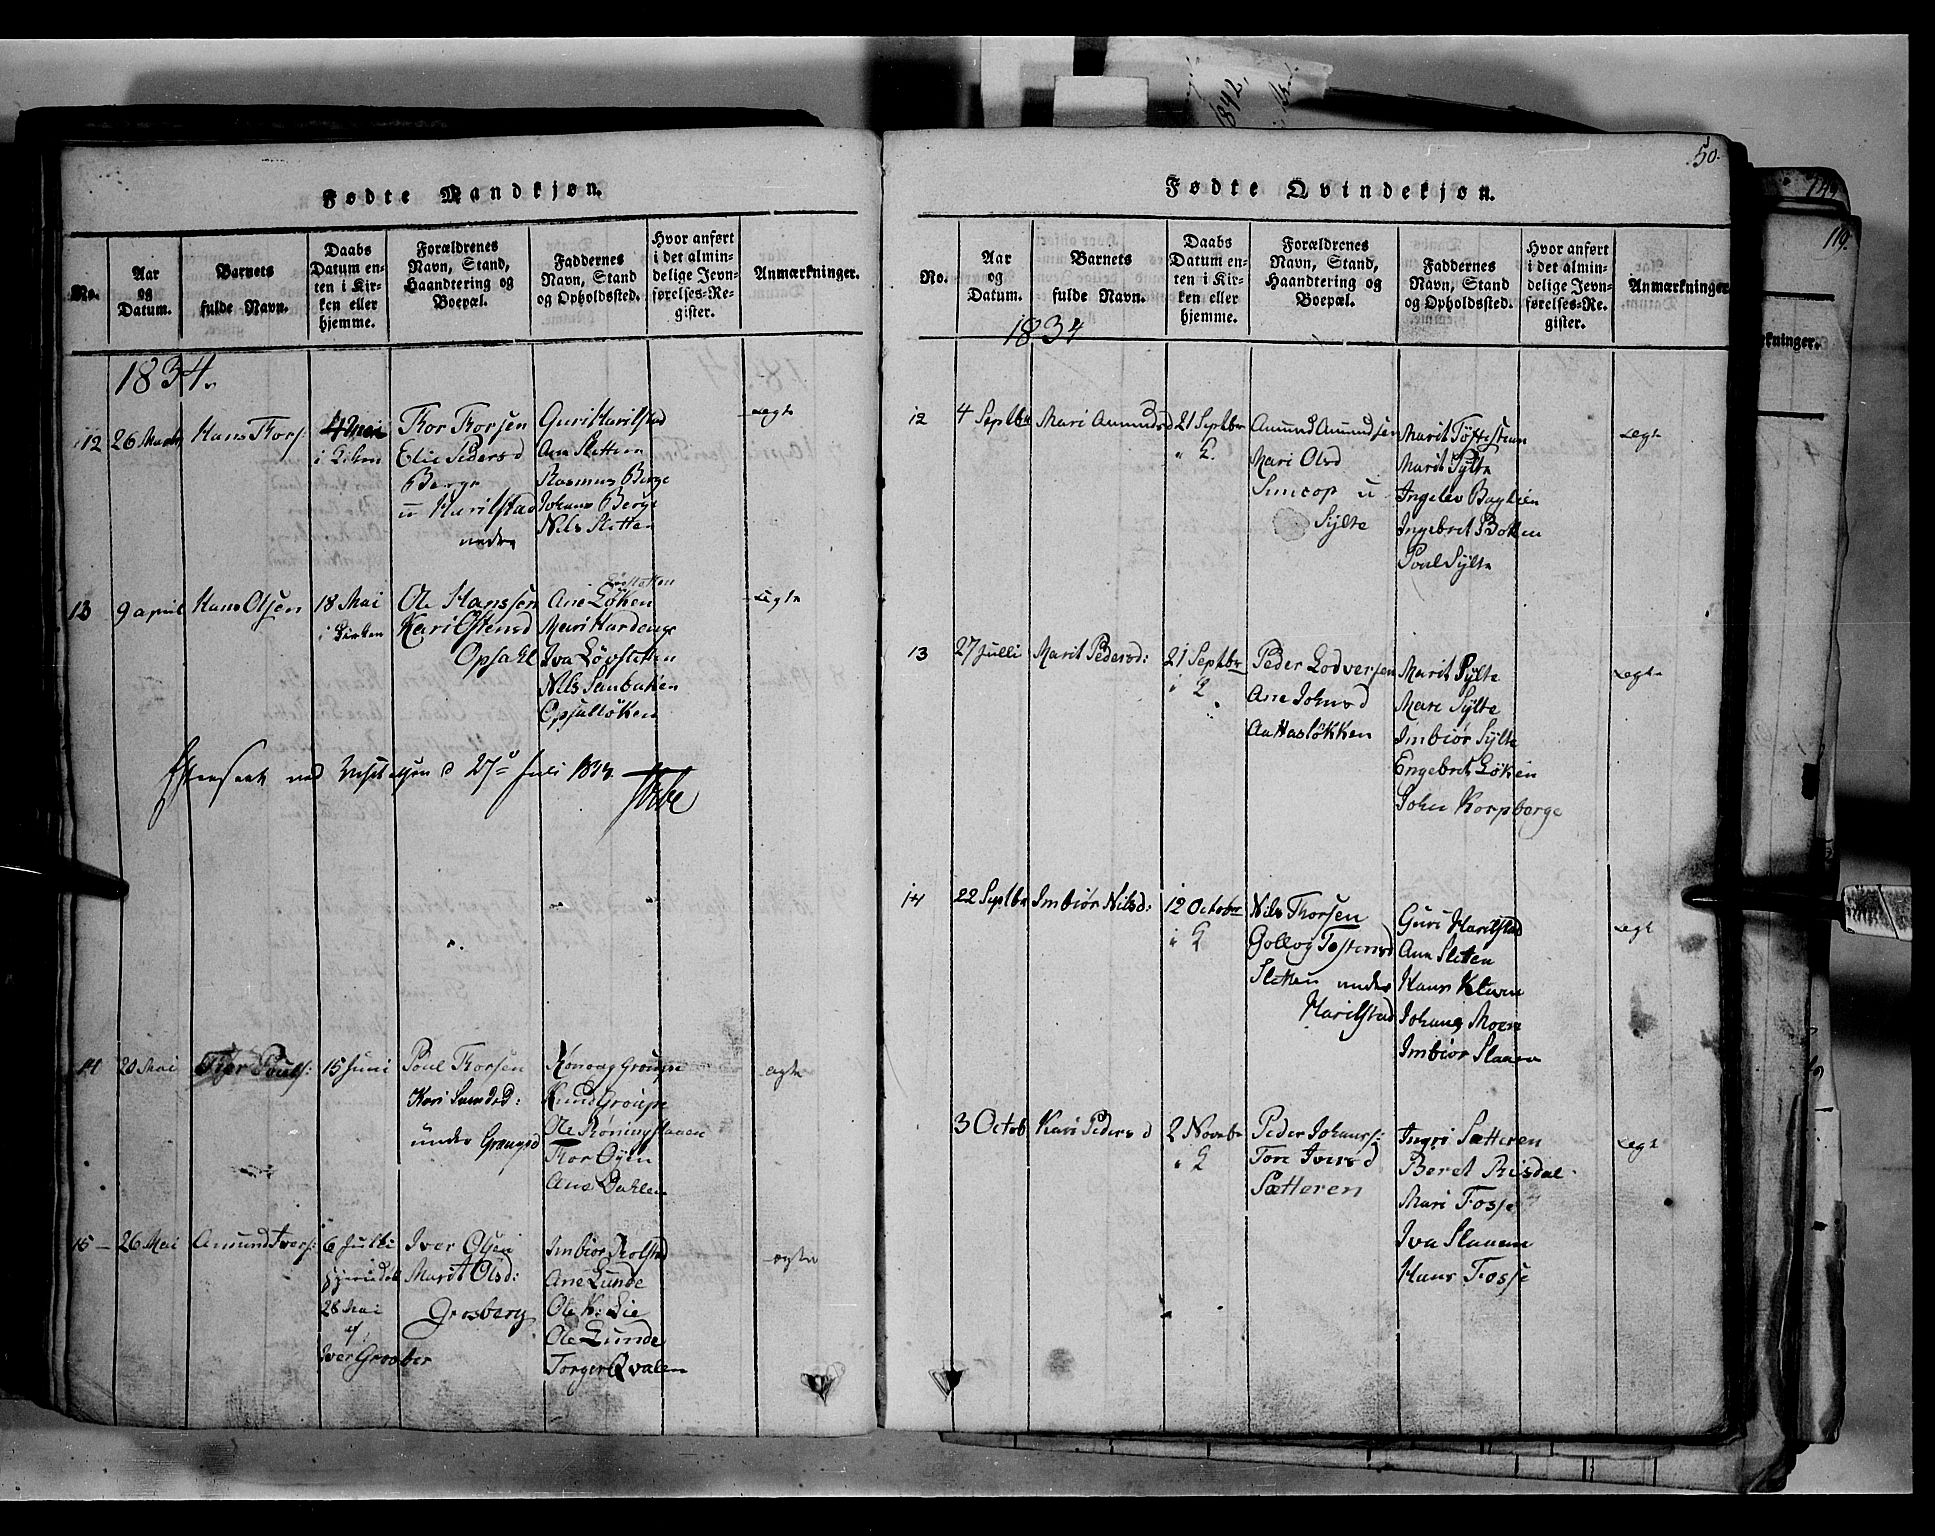 Fødte Mandkjøn.
No.
Aar
og
Datum.
Barnets
fulde Navn.
Daabs
Datum en-
ten i Kir-
ken eller
hjemme.
Forældrenes
Navn, Stand,
Haandtering og
Boepæl.
Faddernes
Navn, Stand
og Opholdssted.
Hvor anført
i det almin-
delige Jevn-
førelses-Re-
gister.
Anmærkninger.
1834.
12
26 Marts
Hans Thors:
4 Mai
i Kirken
Thor Thorsen
Elie Pedersd
Berge
u Harilstad
nedre
Guri Harilstad
Ane Sletten
Rasmus Berge
Johans Berge
Nils Sletten
Ægte
13
9 april
Hans Olsen
18 Mai
i Kirken
Ole Hanssen
Kari Ostensd
Opsahl
Ane Løken
Mari Hardenge
Iva Løvstokken
Nils Sanbaken
Opsalløken
Ægte
ved Visitatsen d 27 Juli 1834
14
20 Mai
Thor Pouls:
15 Juni
Poul Thorsen
Kari
under
Ronoug Groupe
Knud Groupe
Ole
Thor Øyen
Ane Dahlen
ægte
15
26 Mai
Amund Ivers:
6 Julli
hjemedøbt
28 Mai
af
Iver Grosber
Iver Olsen
Marit Olsd:
Grosberg
Imbiør Rolstad
Ane Lunde
Ole K: Lie
Ole Lunde
Torger Qvalen
ægte
50.
Fødte Qvindekjøn.
No.
Aar
og
Datum.
Barnets
fulde Navn.
Daabs
Datum en-
ten i Kir-
ken eller
hjemme.
Forældrenes
Navn, Stand,
Haandtering og
Boepæl.
Faddernes
Navn, Stand
og Opholdssted.
Hvor anført
i det almin-
delige Jevn-
førelses-Re-
gister.
Anmærkninger
1834
12
4 Septbr
Mari Amundsd
21 Septbr
i K.
Amund Amundsen
Mari Olsd
u
Sylte
Marit Tøftestuen
Marit Sylte
Ingelev Baghien
Ingebret Botten
Poul Sylte
Ægte
13
27 Julli
Marit Pedersd:
21 Septbr
i K
Peder Lodversen
Ane Johnsd
AaHasløkken
Marit Sylte
Mari Sylte
Imbiør Sylte
Engebret Løken
John Korpberge
Ægte
14
22 Septbr
Imbiør Nilsd:
12 Octobr
i K
Nils Thorsen
Gollog Tostensd
Sletten under
Harilstad
Guri Harilstad
Ane Sletten
Hans Kleven
Johans Moen
Imbiør Slaaen
Ægte
3 Octob
Kari Pedersd
2 Novebr
i K
Peder Johanss:
Tore Iversd
Sætteren
Ingri Sætteren
Beret Risdal
Mari Fosse
Iva Slaaen
Hans Fosse
Ægte
119.
kninger.
1842,